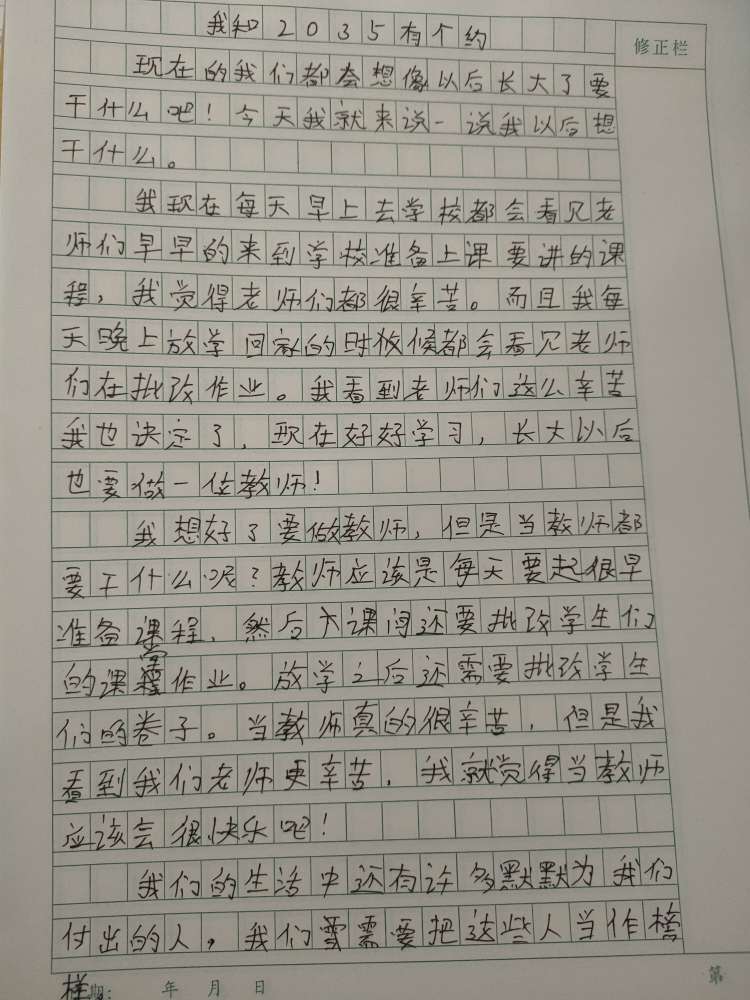 我和2035有个约
修正栏
现在的我们都会想像以后长大了要
干什么吧！今天我就来说一说我以后想
干什么。
我现在每天早上去学校都会看见老
师们早早的来到学校准备上课要讲的课
程，我觉得老师们都很辛苦。而且我每
天晚上放学回家的时候都会看见老师
们在批改作业。我看到老师们这么辛苦
我也决定了，现在好好学习，长大以后
也要做一位教师！
我想好了要做教师，但是当教师都
要干什么呢？教师应该是每天要起很早
准备课程，然后大课间还要批改学生们
的课堂作业。放学之后还需要批改学生
们的卷子。当教师真的很辛苦，但是我
看到我们老师更辛苦，我就觉得当教师
应该会很快乐吧！
我们的生活中还有许多默默为我们
付出的人，我们需要把这些人当作榜
样。期： 年 月 日
第